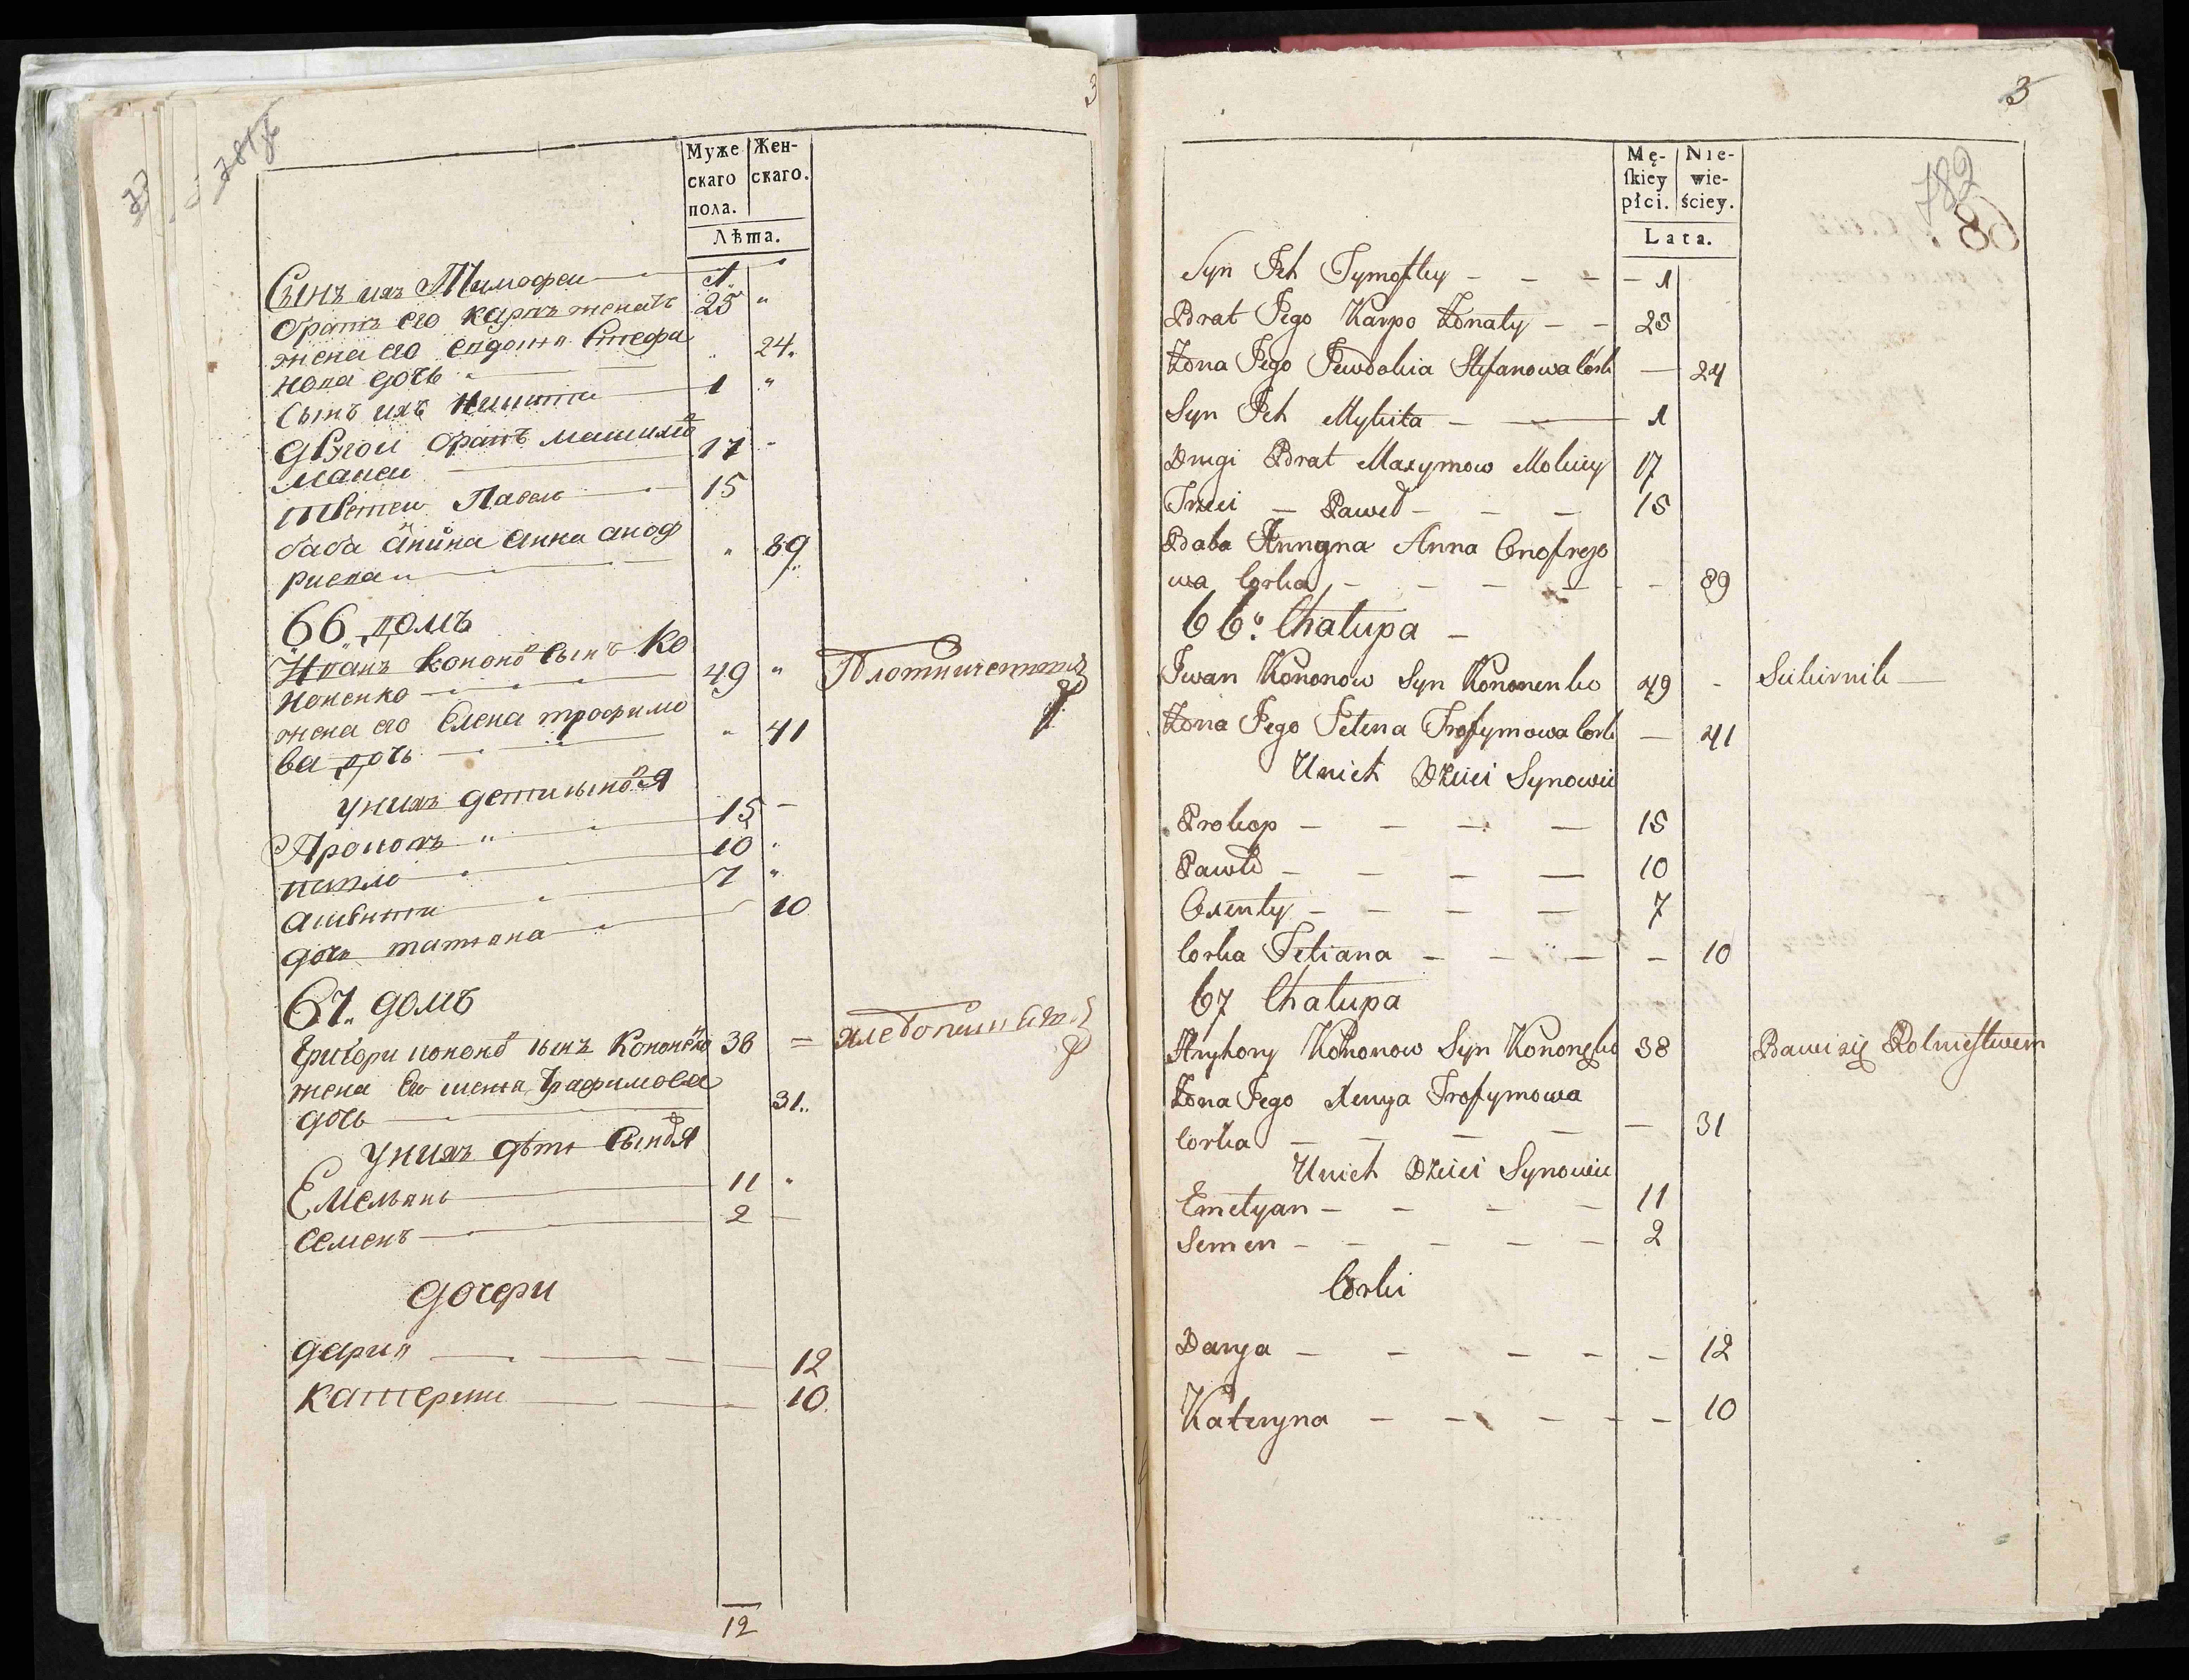 3
Муже
скаго
пола.
Жен-
скаго.
Лѣта.
Сынъ ихъ Тимофеи 1
братъ его карпъ женатъ 25 "
жена его евдокия Стефа
нова дочь " 24
Сынъ ихъ Никита 1 "
другои братъ максимо
мокеи 17
третеи Павелъ 15
баба анина анна аноф
риева " 89
66 домъ
Иванъ кононовъ сынъ Ко
ноненко 49 "
жена его Елена трофимо
ва дочь " 41
у нихъ дети сыновя
Прокопъ 15
павло 10 "
аксенти 7 "
дочь татяна 10
67. домъ
Григори кононовъ сынъ Кононенко 38 =
жена его Трафимова
дочь 31
у нихъ дѣти Сыновя
Емельянъ 11 "
семенъ 2
дочери
дария 12
катерина 10
12
3
782
Mę-
ſkiey
płci.
Nie-
wie-
ściey.
Lata.
Syn Ich Tymofiey – – – 1
Brat Jego Karpo Żonaty – – 25
Żona Jego Jewdokia Stefanowa Cork — 24
Syn Ich Mykita – — 1
Drugi Brat Maxymow Mokiey 17
Trzeci – Paweł – – – 15
Baba Annyna Anna Onofrejo
wa Corka – – – – – 89
66. Chałupa –
Iwan Kononow Syn Kononenko 49 - Siekiernik —
Żona Jego Jelena Trofymowa Cork — 41
Unich Dzieci Synowie
Prokop – – – — 15
Pawło – – – — 10
Oxenty – – – — 7
Corka Tetiana – – – – 10
67 Chałupa
Hryhory Kononow Syn Kononęko 38 Bawi się Rolnictwem
Żona Jego Xenya Trofymowa
Corka – – – – – 31
Unich Dzieci Synowie
Emelyan – – – – 11
Semen – – – – – 2
Corki
Darya – – – – – 12
Kateryna – – – – – 10